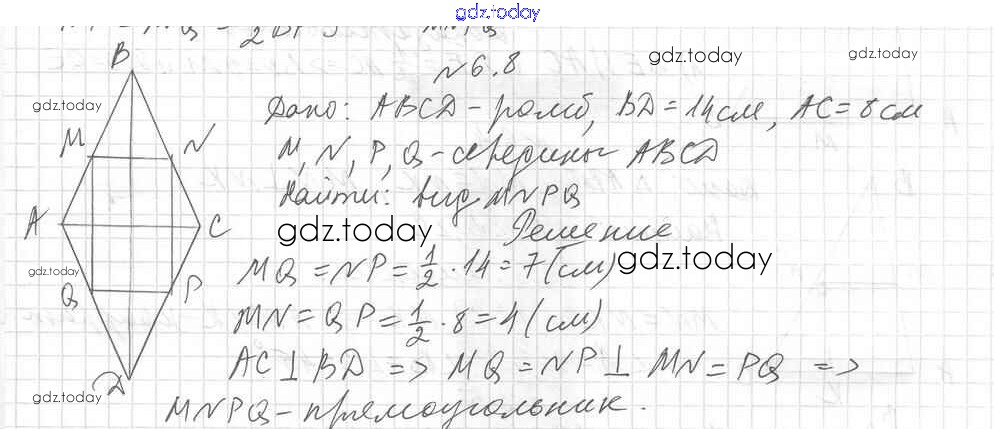 gdz.today
№6.8
gdz.today
gdz.today
B
gdz.today
Дано: ABCD - ромб, BD = 14 см, AC = 8 см
M N
M, N, P, Q - середины ABCD
Найти: вид MNPQ
A C
gdz.today
Решение
gdz.today
MQ = NP = 1/2 · 14 = 7 (см)
gdz.today
Q P
MN = QP = 1/2 · 8 = 4 (см)
AC ⊥ BD => MQ = NP ⊥ MN = PQ =>
D
gdz.today
MNPQ - прямоугольник.